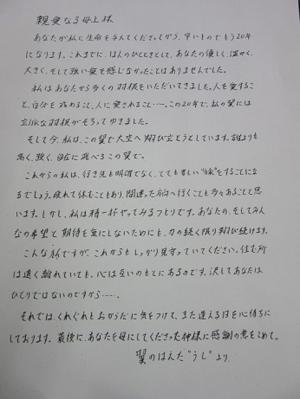 親愛なる母上様
あなたが私に生命を与えてくださってから、早いものでもう20年
になります。これまでに、ほんのひとときとして、あなたの優しく、温かく、
大きく、そして強い愛を感じなかったことはありませんでした。
私はあなたから多くの羽根をいただいてきました。人を愛する
こと、自分を戒めること、人に愛されること……。この20年で、私の翼には
立派な羽根がそろってゆきました。
そして今、私は、この翼で大空へ翔び立とうとしています。誰よりも
高く、強く、自在に飛べるこの翼で。
これからの私は、行き先も明確でなく、とても苦しい“旅”をすることにな
るでしょう。疲れて休むこともあり、間違った方向へ行くことも多々あることと思
います。しかし、私は精一杯やってみるつもりです。あなたの、そしてみん
なの希望と期待を無にしないためにも、力の続く限り翔び続けます。
こんな私ですが、これからもしっかり見守っていてください。住む所
は遠く離れていても、心は互いのもとにあるのです。決してあなたは
ひとりではないのですから……。
それでは、くれぐれもおからだに気をつけて、また逢える日を心待ちに
しております。最後に、あなたを母にしてくださった神様に感謝の意をこめて。
翼のはえた“うし”より